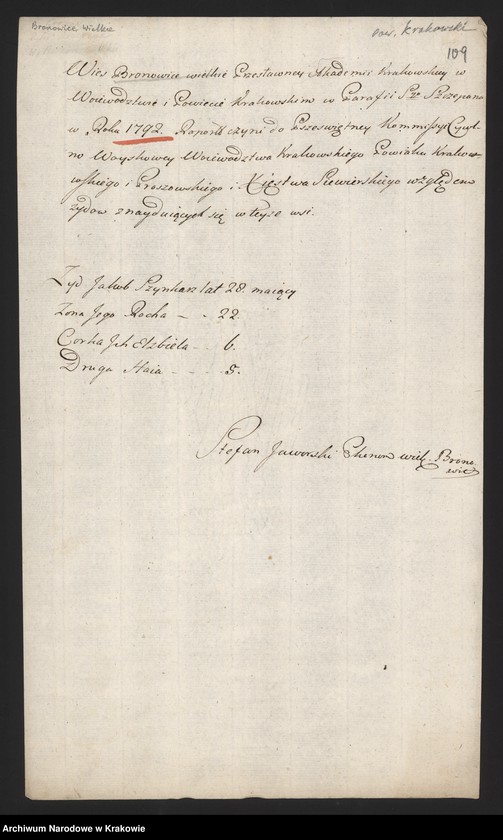 Bronowice Wielkie
pow. krakowski
109
Wies Bronowice wielkie Przesławney Akademii Krakowskiey w
Woiewodztwie i Powiecie Krakowskim w Parafii S° Szczepana
w Roku 1792. Raport czyni do Przeswiętney Kommissyi Cywil-
no Woyskowey Woiewodztwa Krakowskiego Powiatu Krako-
wskiego i Proszowskiego i Xięstwa Siewierskiego względem
żydow znayduiących się w teyże wsi.
Żyd Jakub Szynkarz lat 28. maiący
Zona Jego Rocha — - 22.
Corka Jch Elzbieta - - 6.
Druga Haia - - - 5.
Stefan Jaworski Ekonom wielk. Brono-
wic
Archiwum Narodowe w Krakowie